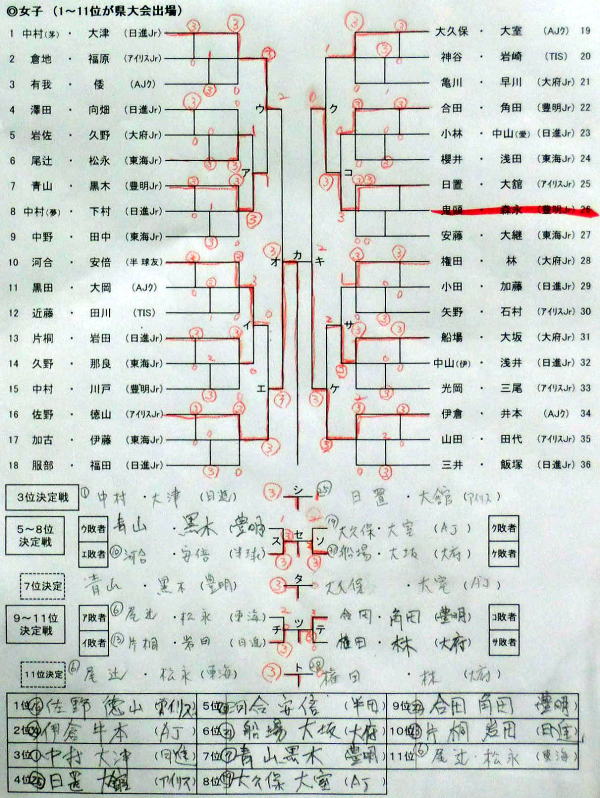 ◎女子 (1～11位が県大会出場)
1 中村(茅)・大津 (日進Jr)
2 倉地・福原 (アイリスJr)
3 有我・倭 (AJク)
4 澤田・向畑 (日進Jr)
5 岩佐・久野 (大府Jr)
6 尾辻・松永 (東海Jr)
7 青山・黒木 (豊明Jr)
8 中村(夢)・下村 (日進Jr)
9 中野・田中 (東海Jr)
10 河合・安倍 (半球友)
11 黒田・大岡 (AJク)
12 近藤・田川 (TIS)
13 片桐・岩田 (日進Jr)
14 久野・那良 (東海Jr)
15 中村・川戸 (豊明Jr)
16 佐野・徳山 (アイリスJr)
17 加古・伊藤 (東海Jr)
18 服部・福田 (日進Jr)
大久保・大室 (AJク) 19
神谷・岩崎 (TIS) 20
亀川・早川 (大府Jr) 21
合田・角田 (豊明Jr) 22
小林・中山(愛) (日進Jr) 23
櫻井・浅田 (東海Jr) 24
日置・大舘 (アイリスJr) 25
鬼頭・森永 (豊明Jr) 26
安藤・大継 (東海Jr) 27
権田・林 (大府Jr) 28
小田・加藤 (日進Jr) 29
矢野・石村 (アイリスJr) 30
船場・大坂 (大府Jr) 31
中山(伊)・浅井 (日進Jr) 32
光岡・三尾 (アイリスJr) 33
伊倉・井本 (AJク) 34
山田・田代 (アイリスJr) 35
三井・飯塚 (日進Jr) 36
ウ ク
ア コ
オ カ キ
イ サ
エ ケ
3位決定戦 ① 中村・大津 (日進) ③ シ ㉕ 日置・大舘 (アイリス)
5～8位決定戦
ウ敗者 青山・黒木 豊明 ス セ ソ ⑲ 大久保・大室 (AJ) ク敗者
エ敗者 ⑩ 河合・安倍 (半球) 船場・大坂 (大府) ケ敗者
7位決定 青山・黒木 (豊明) ③ タ 大久保・大室 (AJ)
9～11位決定戦
ア敗者 ⑥ 尾辻・松永 (東海) チ ツ テ 合田・角田 (豊明) コ敗者
イ敗者 ⑬ 片桐・岩田 (日進) 権田・林 (大府) サ敗者
11位決定 ⑥ 尾辻・松永 (東海) ③ ト 権田・林 (大府)
1位 佐野 徳山 アイリス 5位 河合 安倍 (半田) 9位 合田 角田 豊明
2位 伊倉 井本 (AJ) 6位 船場 大坂 (大府) 10位 片桐 岩田 (日進)
3位 ① 中村 大津 (日進) 7位 青山 黒木 豊明 11位 ⑥ 尾辻・松永 (東海)
4位 日置 大舘 (アイリス) 8位 大久保 大室 (AJ)